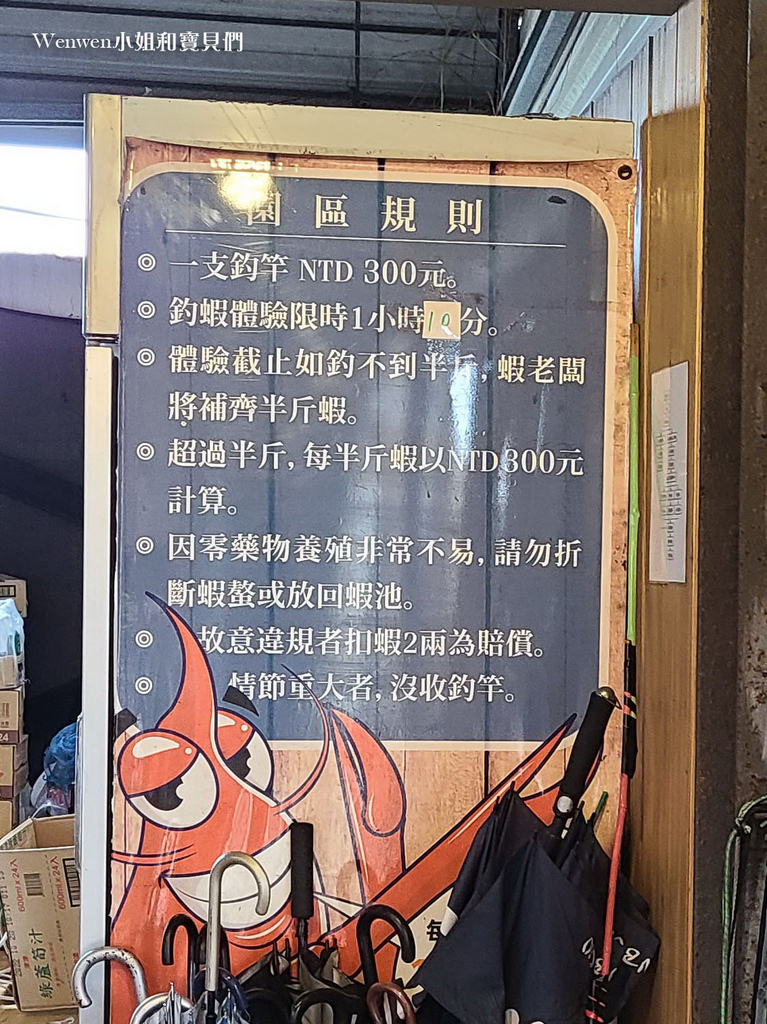 Wenwen小姐和寶貝們
園區規則
◎ 一支釣竿 NTD 300元。
◎ 釣蝦體驗限時1小時10分。
◎ 體驗截止如釣不到半斤,蝦老闆
將補齊半斤蝦。
◎ 超過半斤,每半斤蝦以NTD300元
計算。
◎ 因零藥物養殖非常不易,請勿折
斷蝦螯或放回蝦池。
◎ 故意違規者扣蝦2兩為賠償。
◎ 情節重大者,沒收釣竿。
每
綠蘆筍汁
600ml×24入
600ml×24入
24